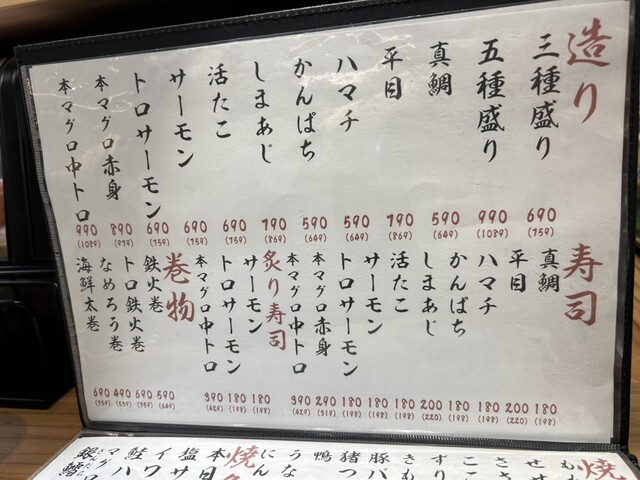 造り
三種盛り 690 (759)
五種盛り 990 (1089)
真鯛 590 (649)
平目 790 (869)
ハマチ 590 (649)
かんぱち 590 (649)
しまあじ 790 (869)
活たこ 690 (759)
サーモン 690 (759)
トロサーモン 690 (759)
本マグロ赤身 890 (979)
本マグロ中トロ 990 (1089)
寿司
真鯛 180 (198)
平目 200 (220)
ハマチ 180 (198)
かんぱち 180 (198)
しまあじ 200 (220)
活たこ 180 (198)
サーモン 180 (198)
トロサーモン 180 (198)
本マグロ赤身 290 (319)
本マグロ中トロ 390 (429)
炙り寿司
サーモン 180 (198)
トロサーモン 180 (198)
本マグロ中トロ 390 (429)
巻物
鉄火巻 590 (649)
トロ鉄火巻 690 (759)
なめろう巻 490 (539)
海鮮太巻 690 (759)
焼
もも
せせ
ささ
ここ
すり
きも
豚バ
猪つ
鴨
うな
にん
焼
本日
塩サ
イワ
鮭ハ
マグ
銀鱈